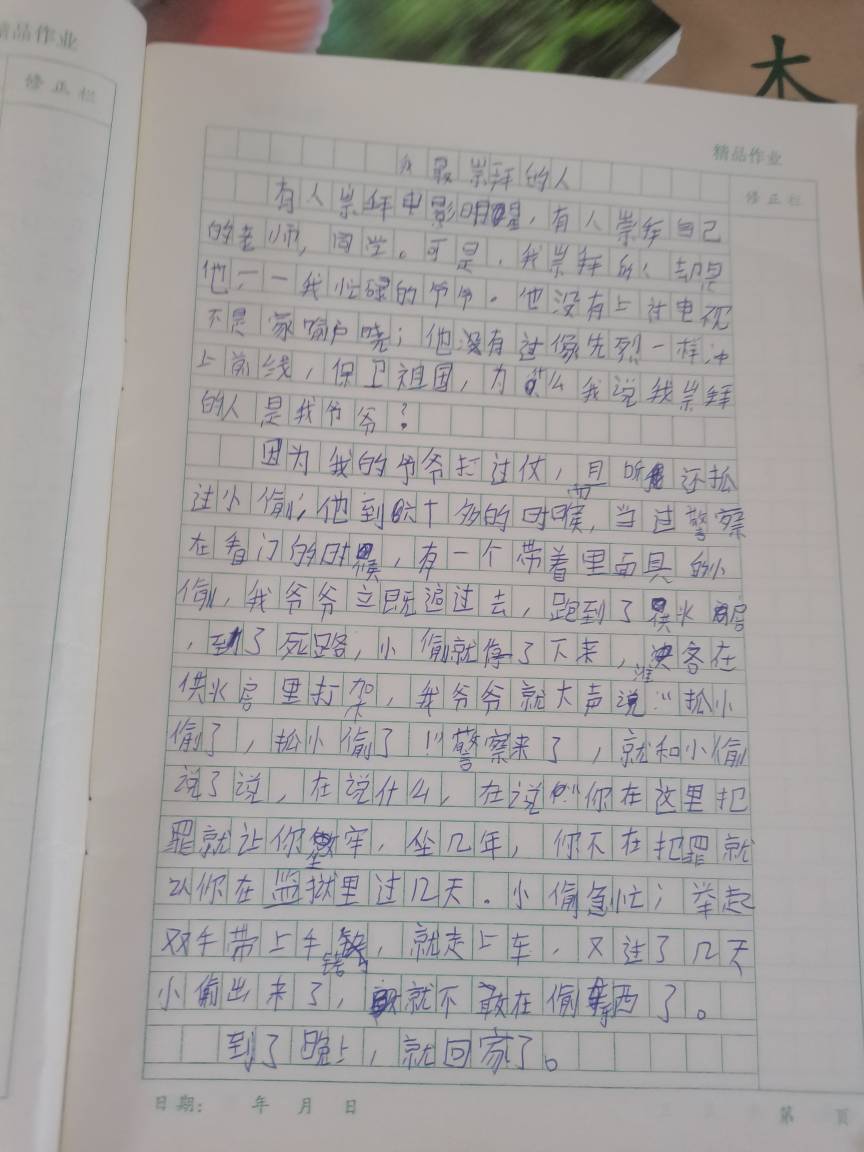 精品作业
修正栏
木
精品作业
修正栏
我最崇拜的人
有人崇拜电影明星，有人崇拜自己
的老师，同学。可是，我崇拜的人却是
他，一一我忙碌的爷爷。他没有上过电视
不是家喻户晓；他没有过像先烈一样冲
上前线，保卫祖国，为什么我说我崇拜
的人是我爷爷？
因为我的爷爷打过仗，而且 还抓
过小偷；他到六十多的时候，当过警察
在看门的时候，有一个带着里面具的小
偷，我爷爷立既追过去，跑到了供水房
，到了死路，小偷就停了下来，准 在
供水房里打架，我爷爷就大声说："抓小
偷了，抓小偷了！"警察来了，就和小偷
说了说，在说什么，在说："你在这里犯
罪就让你坐牢，坐几年，你不在犯罪就
以你在监狱里过几天。小偷急忙；举起
双手带上手铐，就走上车，又过了几天
小偷出来了，就不敢在偷东西了。
到了晚上，就回家了。
日期： 年 月 日
第 页